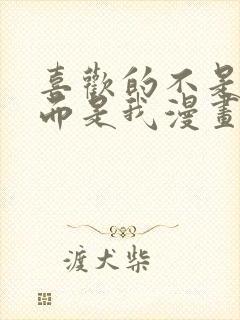 喜歡的不是
而是我漫畫
渡犬柴